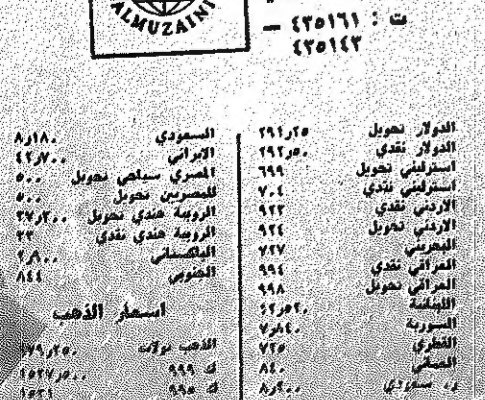 ALMUZAINI
ت : ٤٣٥١٦١ —
٤٣٥١٤٣
الدولار تحويل ٢٩١٫٢٥
الدولار نقدي ٢٩٢٫٥٠
استرليني تحويل ٦٩٩
استرليني نقدي ٧٠٤
الاردني نقدي ٩٢٢
الاردني تحويل ٩٢٤
البحريني ٧٢٧
العراقي نقدي ٩٩٤
العراقي تحويل ٩٩٨
اللبنانية
السورية
القطري ٧٢٥
العماني ٨٤٠
السعودي ٨٫١٨٠
الايراني ٤٢٫٧٠٠
المصري سياحي تحويل ٥٠٠
للمصريين تحويل ٥٠٠
الروبية هندي تحويل ٣٧٫٢٠٠
الروبية هندي نقدي ٣٣
الباكستاني
الجنوبي ٨٤٤
اسعار الذهب
الذهب تولات
ك ٩٩٩
ك ٩٩٥